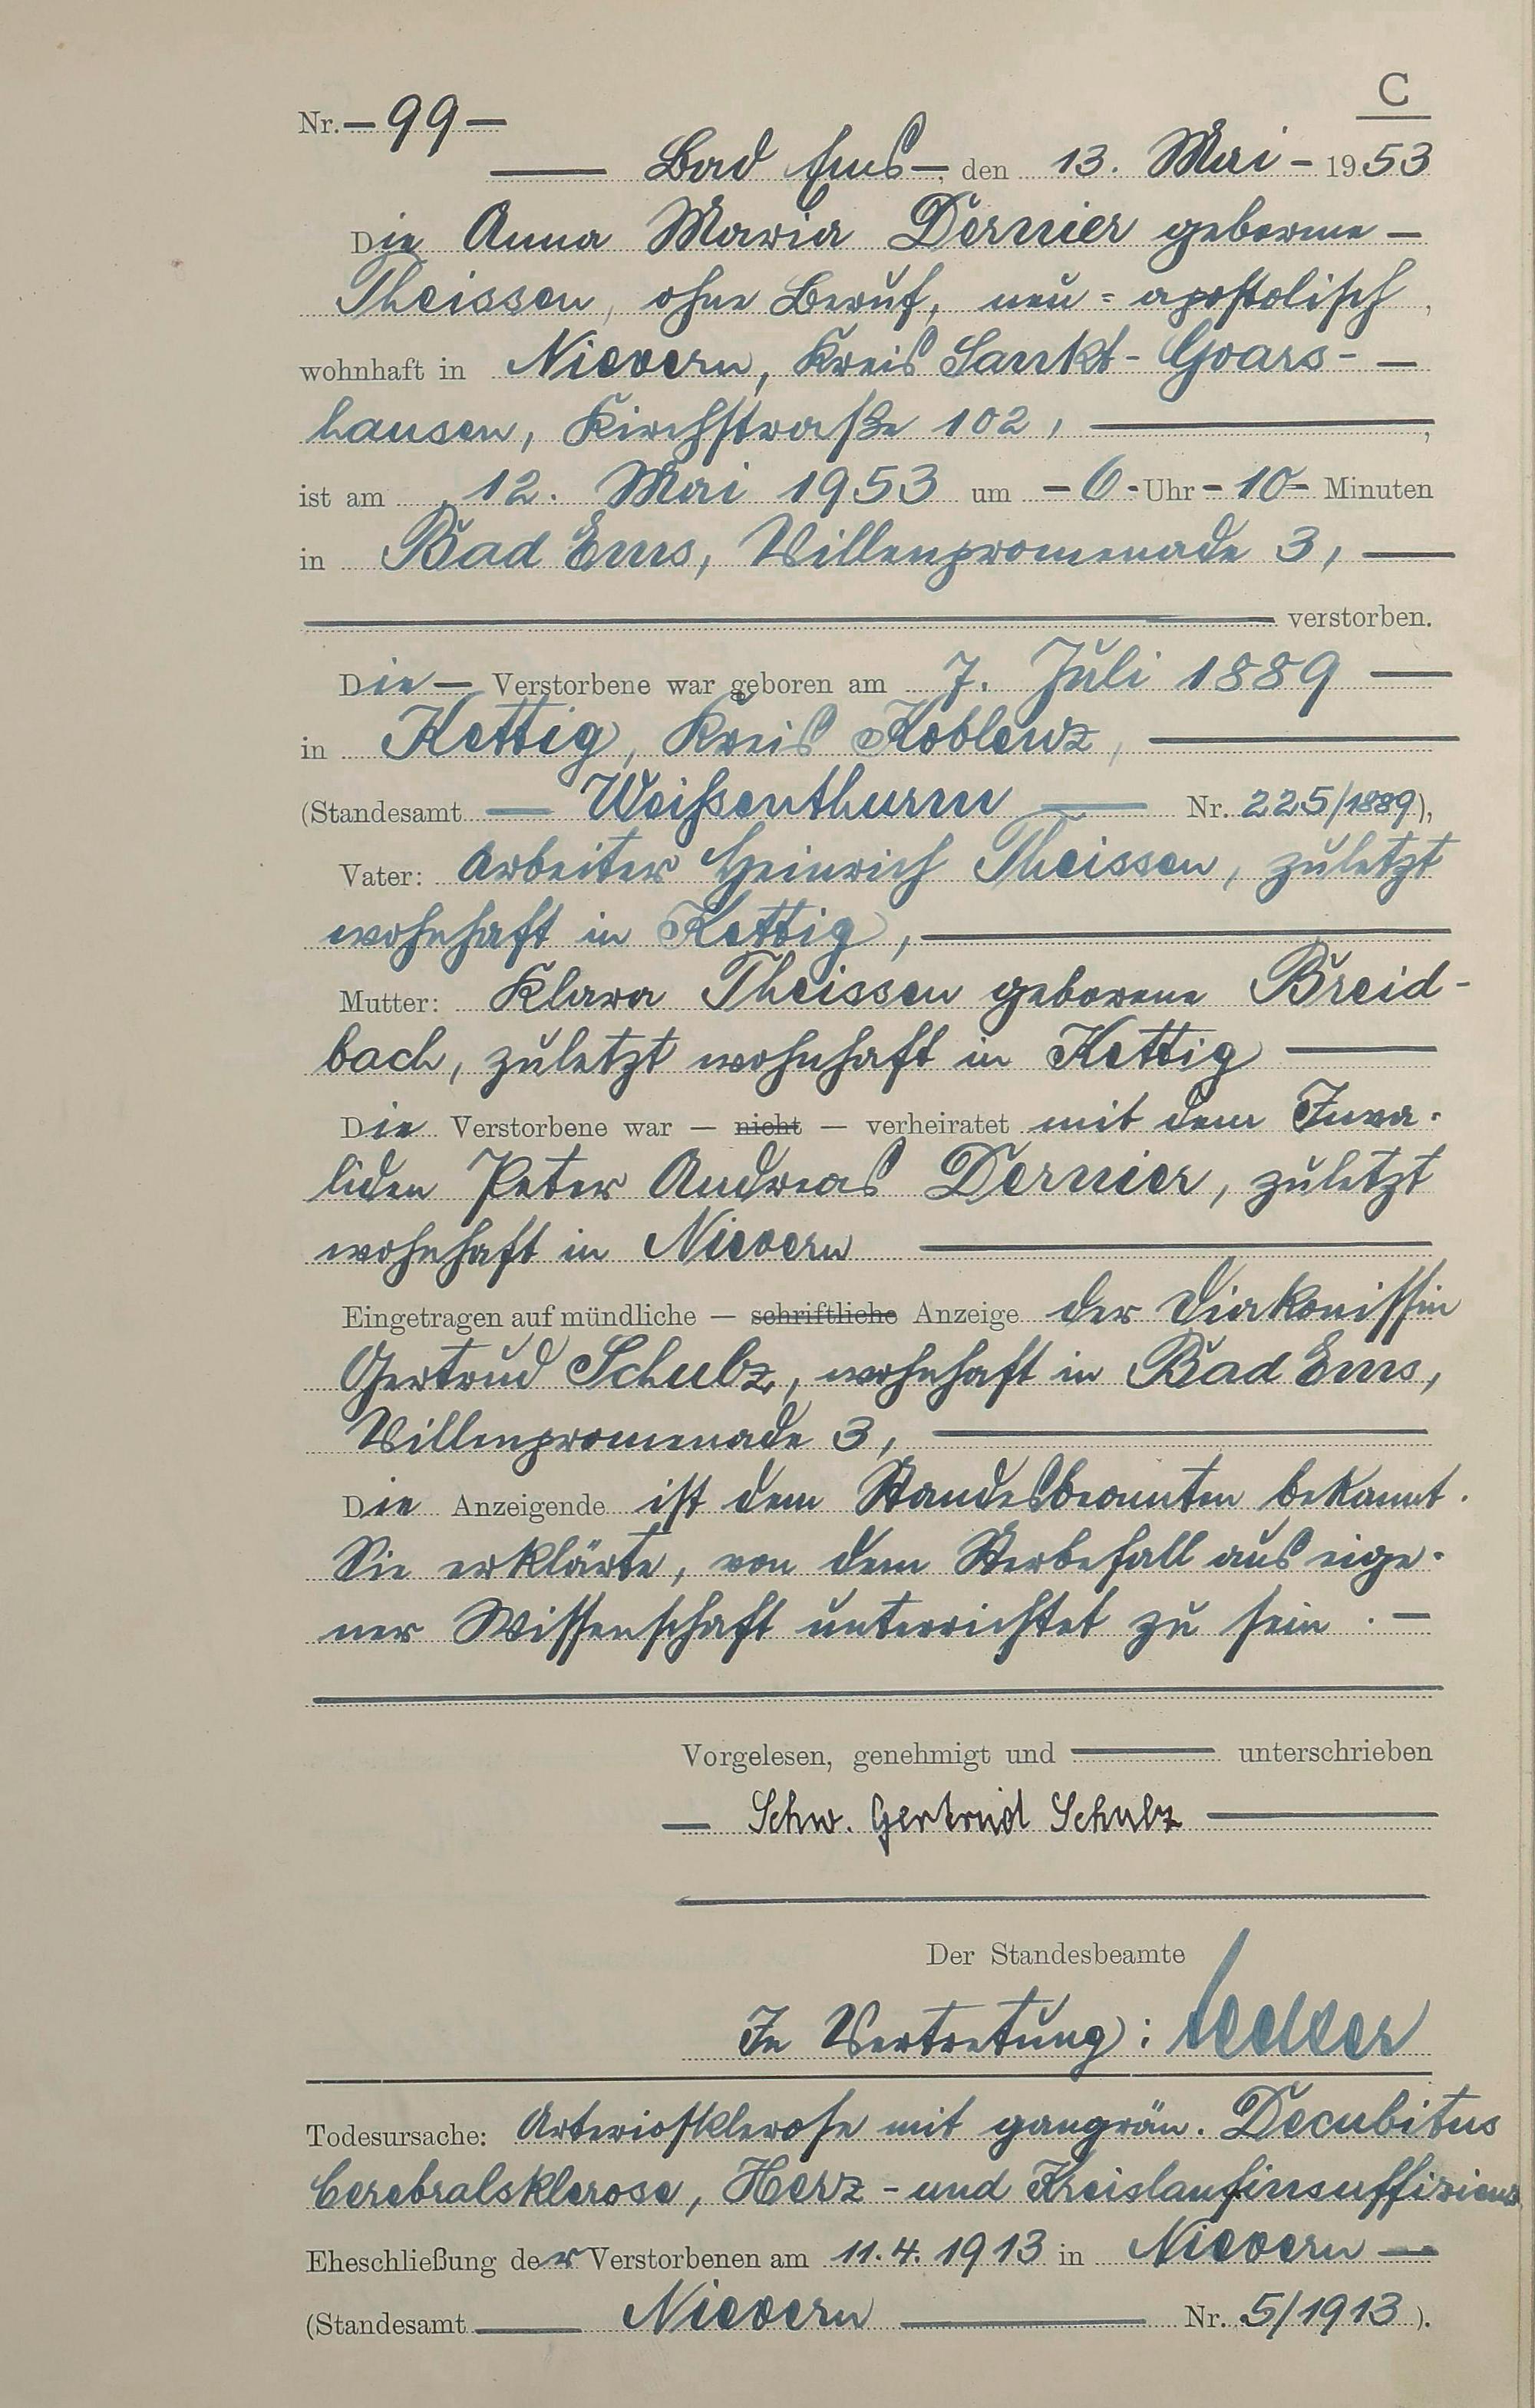 C
Nr. — 99 —
— Bad Ems —, den 13. Mai — 1953
Die Anna Maria Dernier geborene —
Theissen, ohne Beruf, neu = apostolisch,
wohnhaft in Nievern, Kreis Sankt - Goars - —
hausen, Kirchstraße 102, —,
ist am 12. Mai 1953 um — 6 - Uhr — 10 — Minuten
in Bad Ems, Villenpromenade 3, —
— verstorben.
Die — Verstorbene war geboren am 7. Juli 1889 —
in Kettig, Kreis Koblenz, —
(Standesamt — Weißenthurm — Nr. 225/1889),
Vater: Arbeiter Heinrich Theissen, zuletzt
wohnhaft in Kettig, —
Mutter: Klara Theissen geborene Breid-
bach, zuletzt wohnhaft in Kettig —
Die Verstorbene war — nicht — verheiratet mit dem Inva-
liden Peter Andreas Dernier, zuletzt
wohnhaft in Nievern —
Eingetragen auf mündliche — schriftliche Anzeige der Diakonissin
Gertrud Schulz, wohnhaft in Bad Ems,
Villenpromenade 3, —
Die Anzeigende ist dem Standesbeamten bekannt.
Sie erklärte, von dem Sterbefall aus eige-
ner Wissenschaft unterrichtet zu sein. —
Vorgelesen, genehmigt und — unterschrieben
— Schw. Gertrud Schulz —
Der Standesbeamte
In Vertretung:
Todesursache: Arteriosklerose mit gangrän. Decubitus
Cerebralsklerose, Herz - und Kreislaufinsuffizienz
Eheschließung der Verstorbenen am 11.4.1913 in Nievern —
(Standesamt — Nievern — Nr. 5/1913).